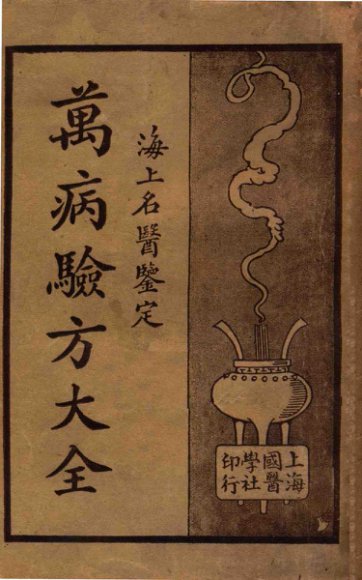 上海
國醫
學社
印行
海上名醫鑒定
萬病驗方大全